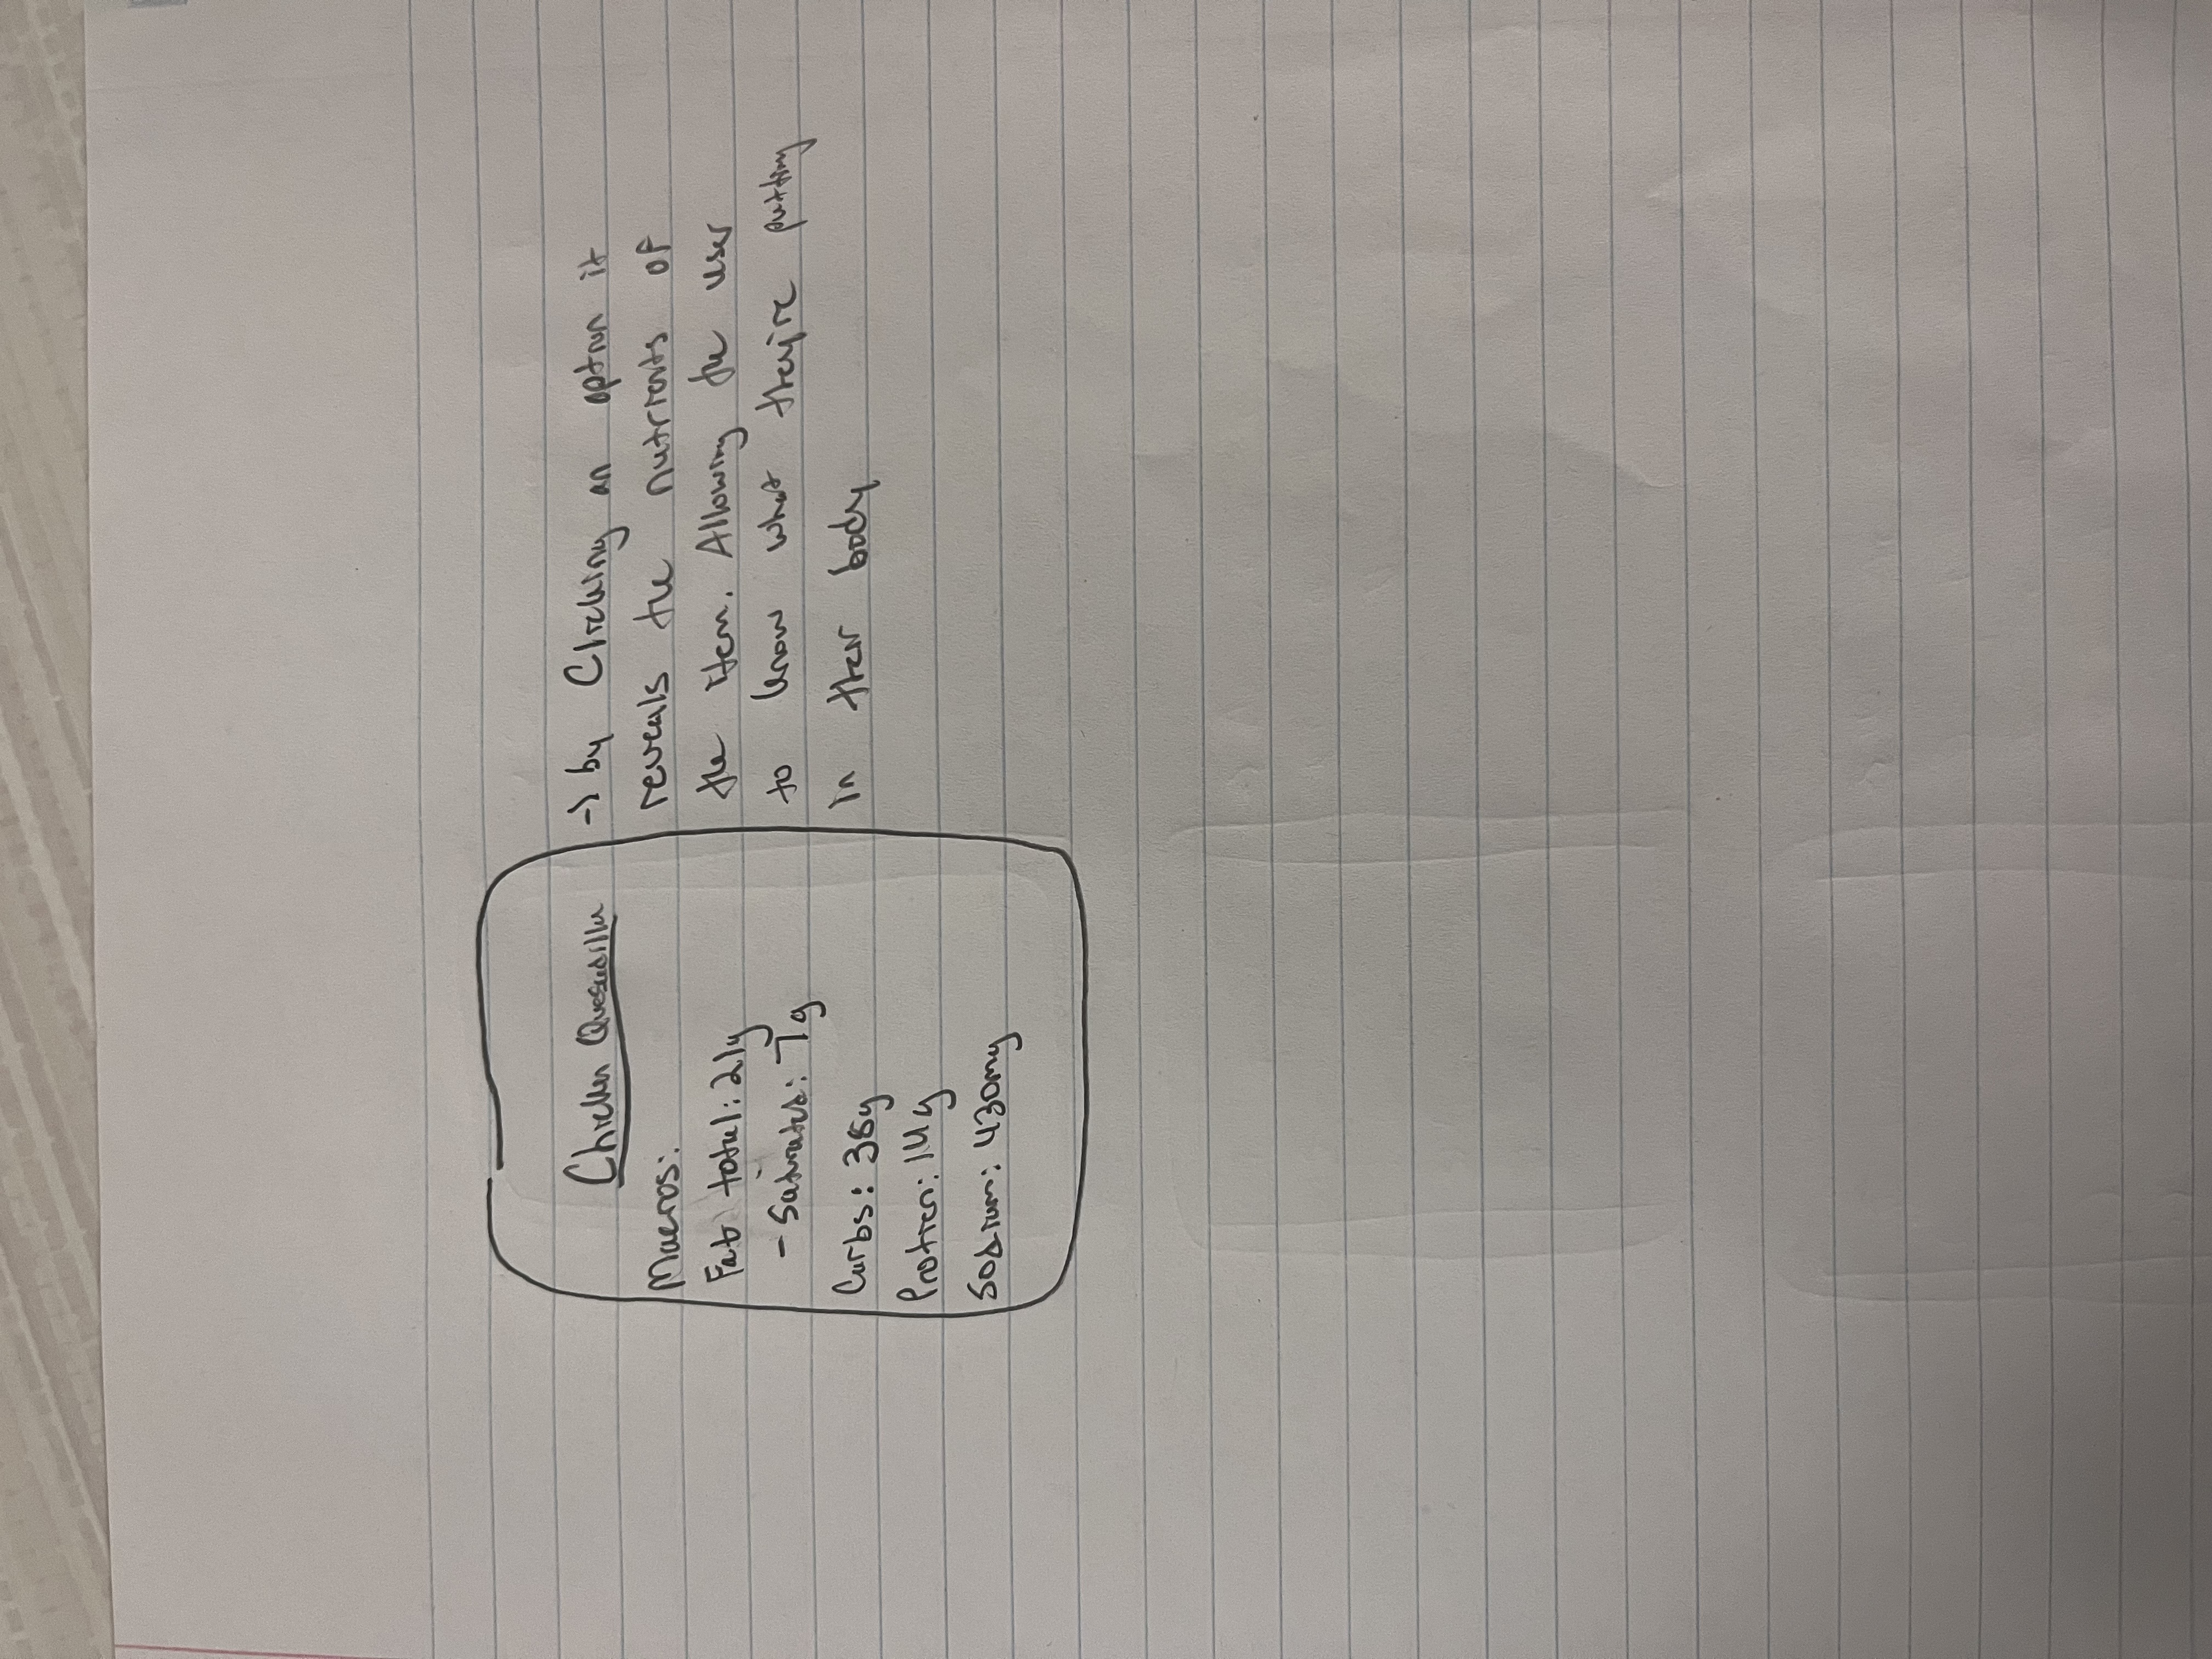 Chicken Quesadilla
Macros:
Fat total: 21g
- Saturated: 7g
Carbs: 38g
Protien: 14g
Sodium: 430mg
-> by Clicking an option it
reveals the nutrients of
the item. Allowing the user
to know what they're putting
in their body